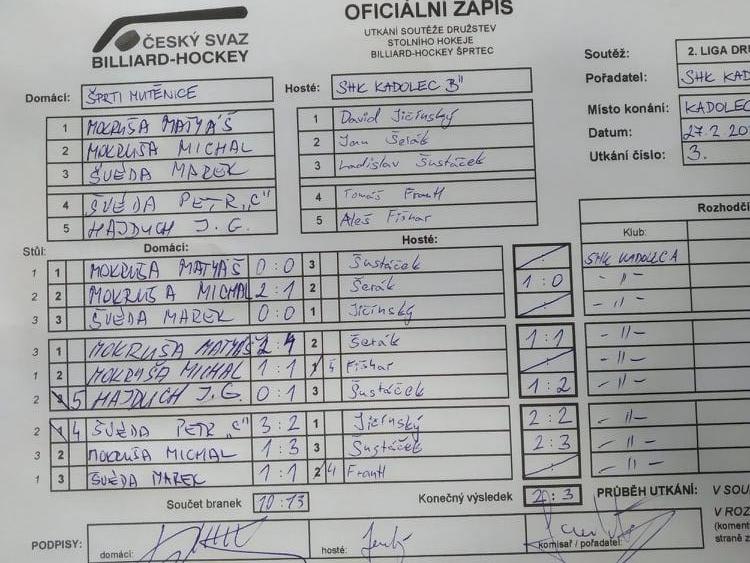 ČESKÝ SVAZ
BILLIARD-HOCKEY
OFICIÁLNÍ ZÁPIS
UTKÁNÍ SOUTĚŽE DRUŽSTEV
STOLNÍHO HOKEJE
BILLIARD-HOCKEY ŠPRTEC
Soutěž: 2. LIGA DRU
Pořadatel: SHK KAD
Místo konání: KADOLEC
Datum: 27.2.20
Utkání číslo: 3.
Domácí: ŠPRTI MUTĚNICE
Hosté: SHK KADOLEC B"
1 MOKRUŠA MATYÁŠ
2 MOKRUŠA MICHAL
3 ŠVÉDA MAREK
4 ŠVÉDA PETR „C"
5 HAJDUCH J. G.
1 David Jičínský
2 Jan Šerák
3 Ladislav Šustáček
4 Tomáš Frantl
5 Aleš Fišhar
Rozhodčí
Klub:
Stůl: Domácí: Hosté:
1 1 MOKRUŠA MATYÁŠ 0:0 3 Šustáček : SHK KADOLEC A
2 2 MOKRUŠA MICHAL 2:1 2 Šerák 1:0 -"-
3 3 ŠVÉDA MAREK 0:0 1 Jičínský : -"-
3 1 MOKRUŠA MATYÁŠ 2:4 2 Šerák 1:1 -"-
1 2 MOKRUŠA MICHAL 1:1 Fišhar : -"-
2 5 HAJDUCH J. G. 0:1 3 Šustáček 1:2 -"-
2 4 ŠVÉDA PETR „C" 3:2 1 Jičínský 2:2 -"-
3 2 MOKRUŠA MICHAL 1:3 3 Šustáček 2:3 -"-
1 3 ŠVÉDA MAREK 1:1 4 Frantl : -"-
Součet branek 10:13 Konečný výsledek 2:3 PRŮBĚH UTKÁNÍ: V SOU
V ROZ
(koment
straně z
PODPISY: domácí: hosté: komisař / pořadatel: